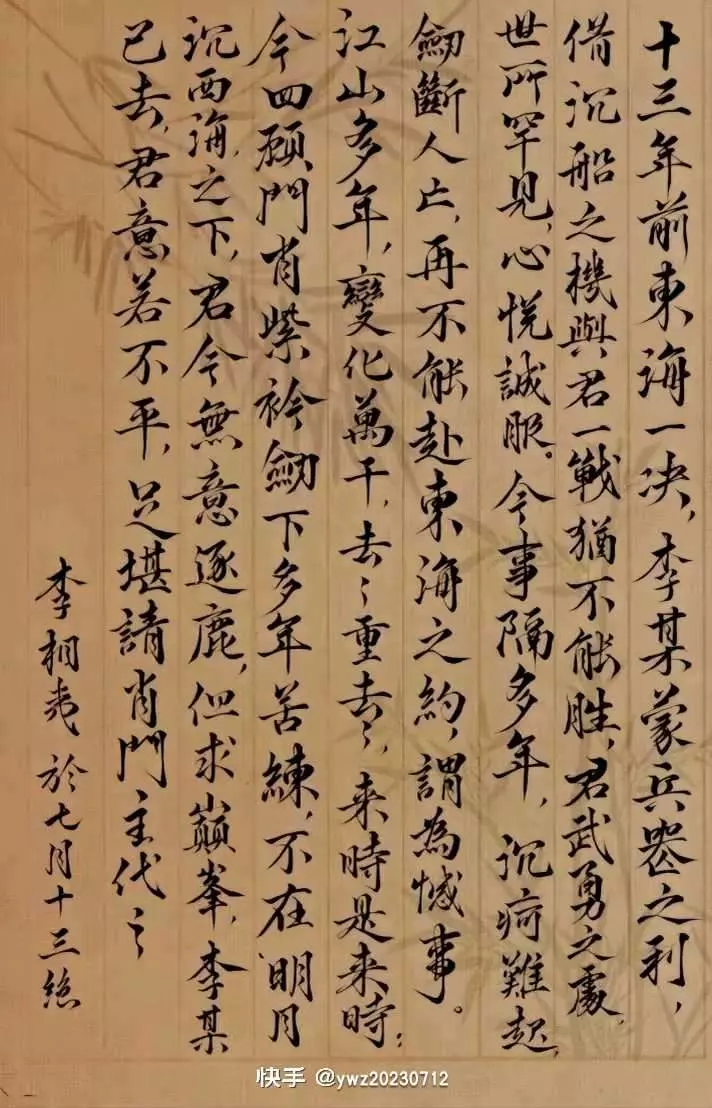 十三年前東海一决，李某蒙兵器之利，
借沉船之機與君一戰猶不能勝，君武勇之處，
世所罕見，心悅誠服。今事隔多年，沉疴難起，
劒斷人亡，再不能赴東海之約，謂為憾事。
江山多年，變化萬千，去〻重去〻，来時是来時；
今四顧門肖紫衿劒下多年苦練，不在明月
沉西海之下，君今無意逐鹿，但求巔峯，李某
已去，君意若不平，足堪請肖門主代之
李相夷於七月十三絶
快手 @ywz20230712